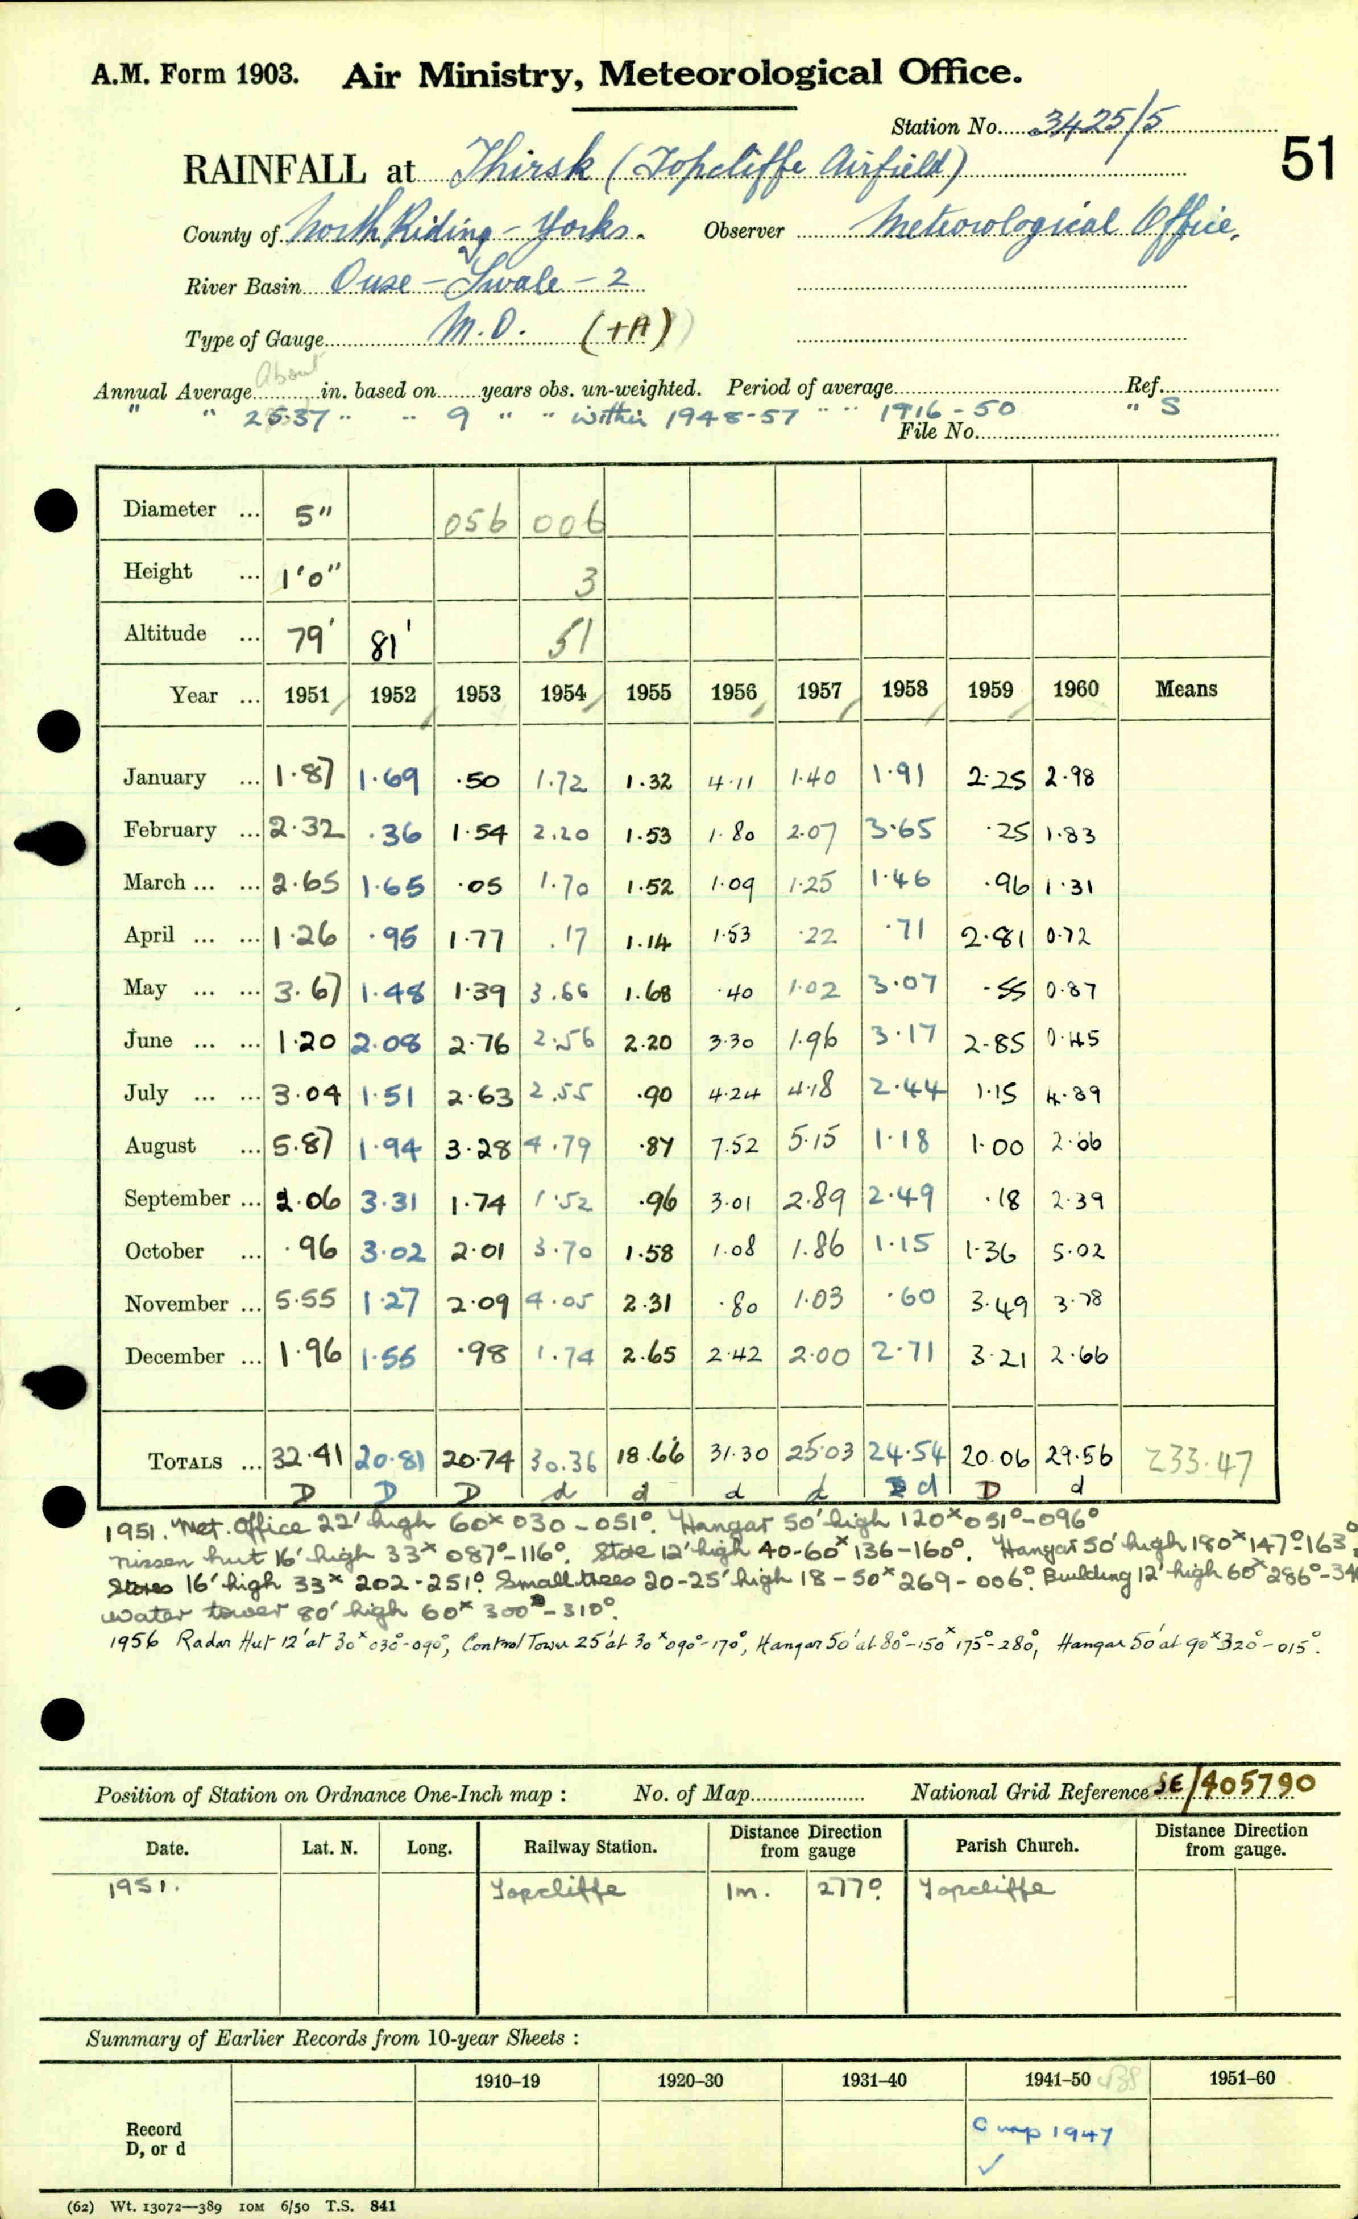 A.M. Form 1903. Air Ministry, Meteorological Office.
Station No. 3425/5
51
RAINFALL at Thirsk (Topcliffe Airfield)
County of North Riding - Yorks. Observer Meteorological Office,
River Basin Ouse - Swale - 2
Type of Gauge M.O. (+A)
About
Annual Average in. based on years obs. un-weighted. Period of average Ref.
" " 25.37 " " 9 " " within 1948-57 " " 1916-50 " S
File No.
Diameter ... 5" 056 006
Height ... 1'0" 3
Altitude ... 79' 81' 51
Year ... 1951 1952 1953 1954 1955 1956 1957 1958 1959 1960 Means
January ... 1.87 1.69 .50 1.72 1.32 4.11 1.40 1.91 2.25 2.98
February ... 2.32 .36 1.54 2.20 1.53 1.80 2.07 3.65 .25 1.83
March ... ... 2.65 1.65 .05 1.70 1.52 1.09 1.25 1.46 .96 1.31
April ... ... 1.26 .95 1.77 .17 1.14 1.53 .22 .71 2.81 0.72
May ... ... 3.67 1.48 1.39 3.66 1.68 .40 1.02 3.07 .55 0.87
June ... ... 1.20 2.08 2.76 2.56 2.20 3.30 1.96 3.17 2.85 0.45
July ... ... 3.04 1.51 2.63 2.55 .90 4.24 4.18 2.44 1.15 4.89
August ... 5.87 1.94 3.28 4.79 .87 7.52 5.15 1.18 1.00 2.66
September ... 2.06 3.31 1.74 1.52 .96 3.01 2.89 2.49 .18 2.39
October ... .96 3.02 2.01 3.70 1.58 1.08 1.86 1.15 1.36 5.02
November ... 5.55 1.27 2.09 4.05 2.31 .80 1.03 .60 3.49 3.78
December ... 1.96 1.55 .98 1.74 2.65 2.42 2.00 2.71 3.21 2.66
TOTALS ... 32.41 20.81 20.74 30.36 18.66 31.30 25.03 24.54 20.06 29.56 233.47
D D D d d d d d D d
1951. Met. Office 22' high 60x 030-051°. Hangar 50' high 120x 051°-096°
Nissen hut 16' high 33x 087°-116°. Store 12' high 40-60x 136-160°. Hangar 50' high 180x 147°-163°.
Stores 16' high 33x 202-251°. Small trees 20-25' high 18-50x 269-006°. Building 12' high 60x 286°-34
Water tower 80' high 60x 300°-310°.
1956 Radar Hut 12' at 30x 030°-090°, Control Tower 25' at 30x 090°-170°, Hangar 50' at 80°-150x 175°-280°, Hangar 50' at 90x 320°-015°.
Position of Station on Ordnance One-Inch map : No. of Map National Grid Reference SE/405790
Date. Lat. N. Long. Railway Station. Distance from gauge Direction Parish Church. Distance from gauge. Direction
1951. Topcliffe 1m. 277° Topcliffe
Summary of Earlier Records from 10-year Sheets :
1910-19 1920-30 1931-40 1941-50 1951-60
Record
D, or d
Comp 1947
✓
(62) Wt. 13072—389 10M 6/50 T.S. 841